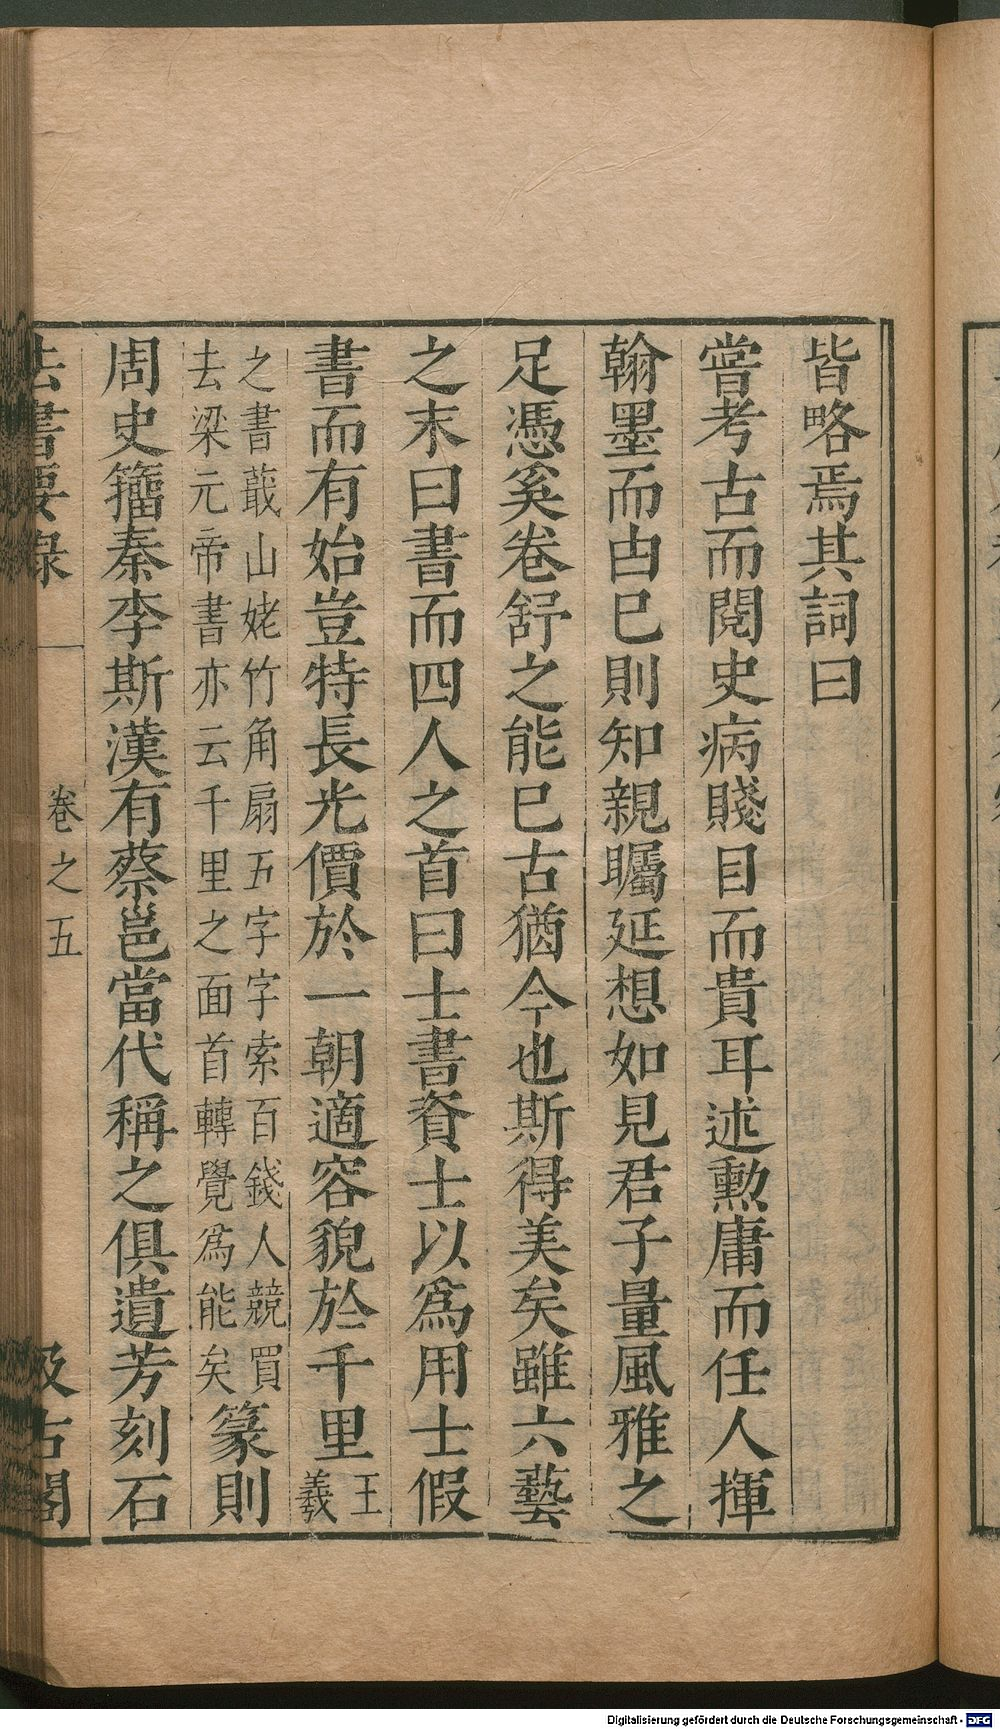 皆略焉其詞曰
嘗考古而閱史病賤目而貴耳述勲庸而任人揮
翰墨而由巳則知親矚延想如見君子量風雅之
足憑奚卷舒之能巳古猶今也斯得美矣雖六藝
之末曰書而四人之首曰士書資士以爲用士假
書而有始豈特長光價於一朝適容貌於千里王羲
之書蕺山姥竹角扇五字字索百錢人競買
去梁元帝書亦云千里之面首轉覺爲能矣篆則
周史籀秦李斯漢有蔡邕當代稱之俱遺芳刻石
法書要錄 卷之五 汲古閣
Digitalisierung gefördert durch die Deutsche Forschungsgemeinschaft - DFG